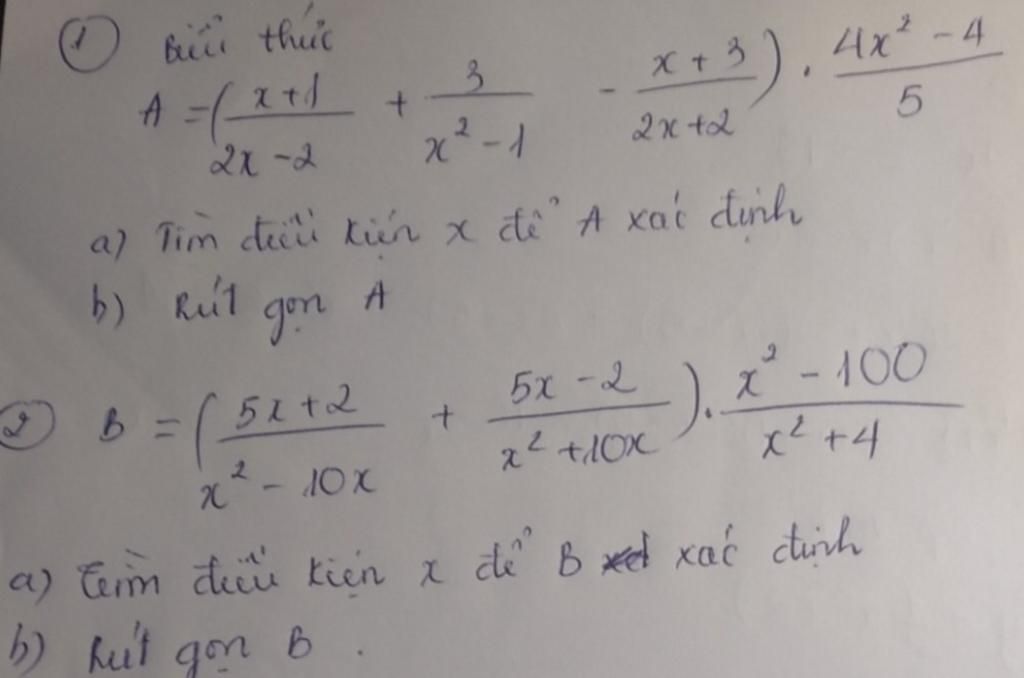 ① Biểu thức
A = ( (x+1)/(2x-2) + 3/(x²-1) - (x+3)/(2x+2) ) . (4x²-4)/5
a) Tìm điều kiện x để A xác định
b) Rút gọn A
② B = ( (5x+2)/(x²-10x) + (5x-2)/(x²+10x) ) . (x²-100)/(x²+4)
a) Tìm điều kiện x để B xác định
b) Rút gọn B .